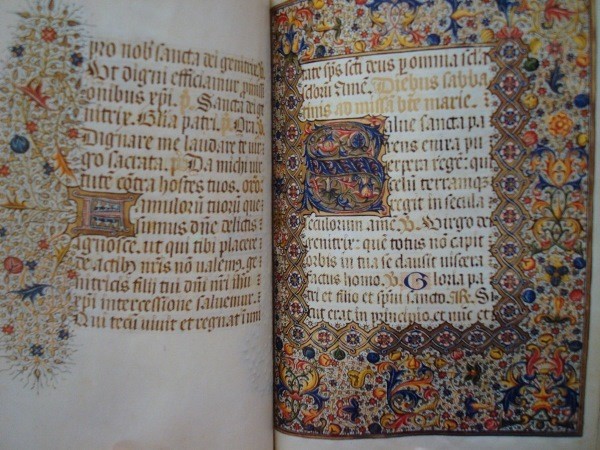 pro nob' sancta dei genitrix
Ut digni efficiamur pmissi
onibus xp̄i. Sancta dei ge
nitrix. Gl̄ia patri. Ora.
Dignare me laudare te uir
go sacrata. Da michi uir
tutē cōtra hostes tuos. orō
Famulorum tuorum que
sumus dn̄e delictis
ignosce. ut qui tibi placere
de actib' nr̄is nō ualem'. ge
nitricis filii tui dn̄i nr̄i ihū
xp̄i intercessione saluemur.
Qui tecū uiuit et regnat ī uni
tate sp̄s sc̄ti deus p omnia scl̄
sclōrum amē. Diebus sabba
tinis ad missā bt̄e marie.
Salue sancta pa
rens enixa puer
pera regē: qui
celū terramq
regit in secula
seculorum amē. V. Virgo dei
genitrix: quē totus nō capit
orbis in tua se clausit uisera
factus homo. V. Gloria pa
tri et filio et sp̄ui sancto. R. Si
cut erat in principio et nūc et